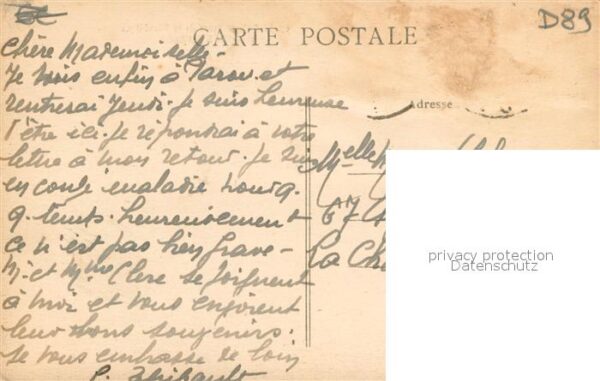 D89
CARTE POSTALE
Chère Mademoiselle
Je vois enfin à et
rentrerai Jeudi. Je suis heureuse
d'être ici. Je répondrai à votre
lettre à mon retour. Je suis
en congé maladie pour q.
q. temps. heureusement
ce n'est pas bien grave -
Mr et Mme Clerc se joignent
à moi et vous envoient
leurs bons souvenirs.
Je vous embrasse de loin
Thibault
Adresse
Melle
67
La
privacy protection
Datenschutz